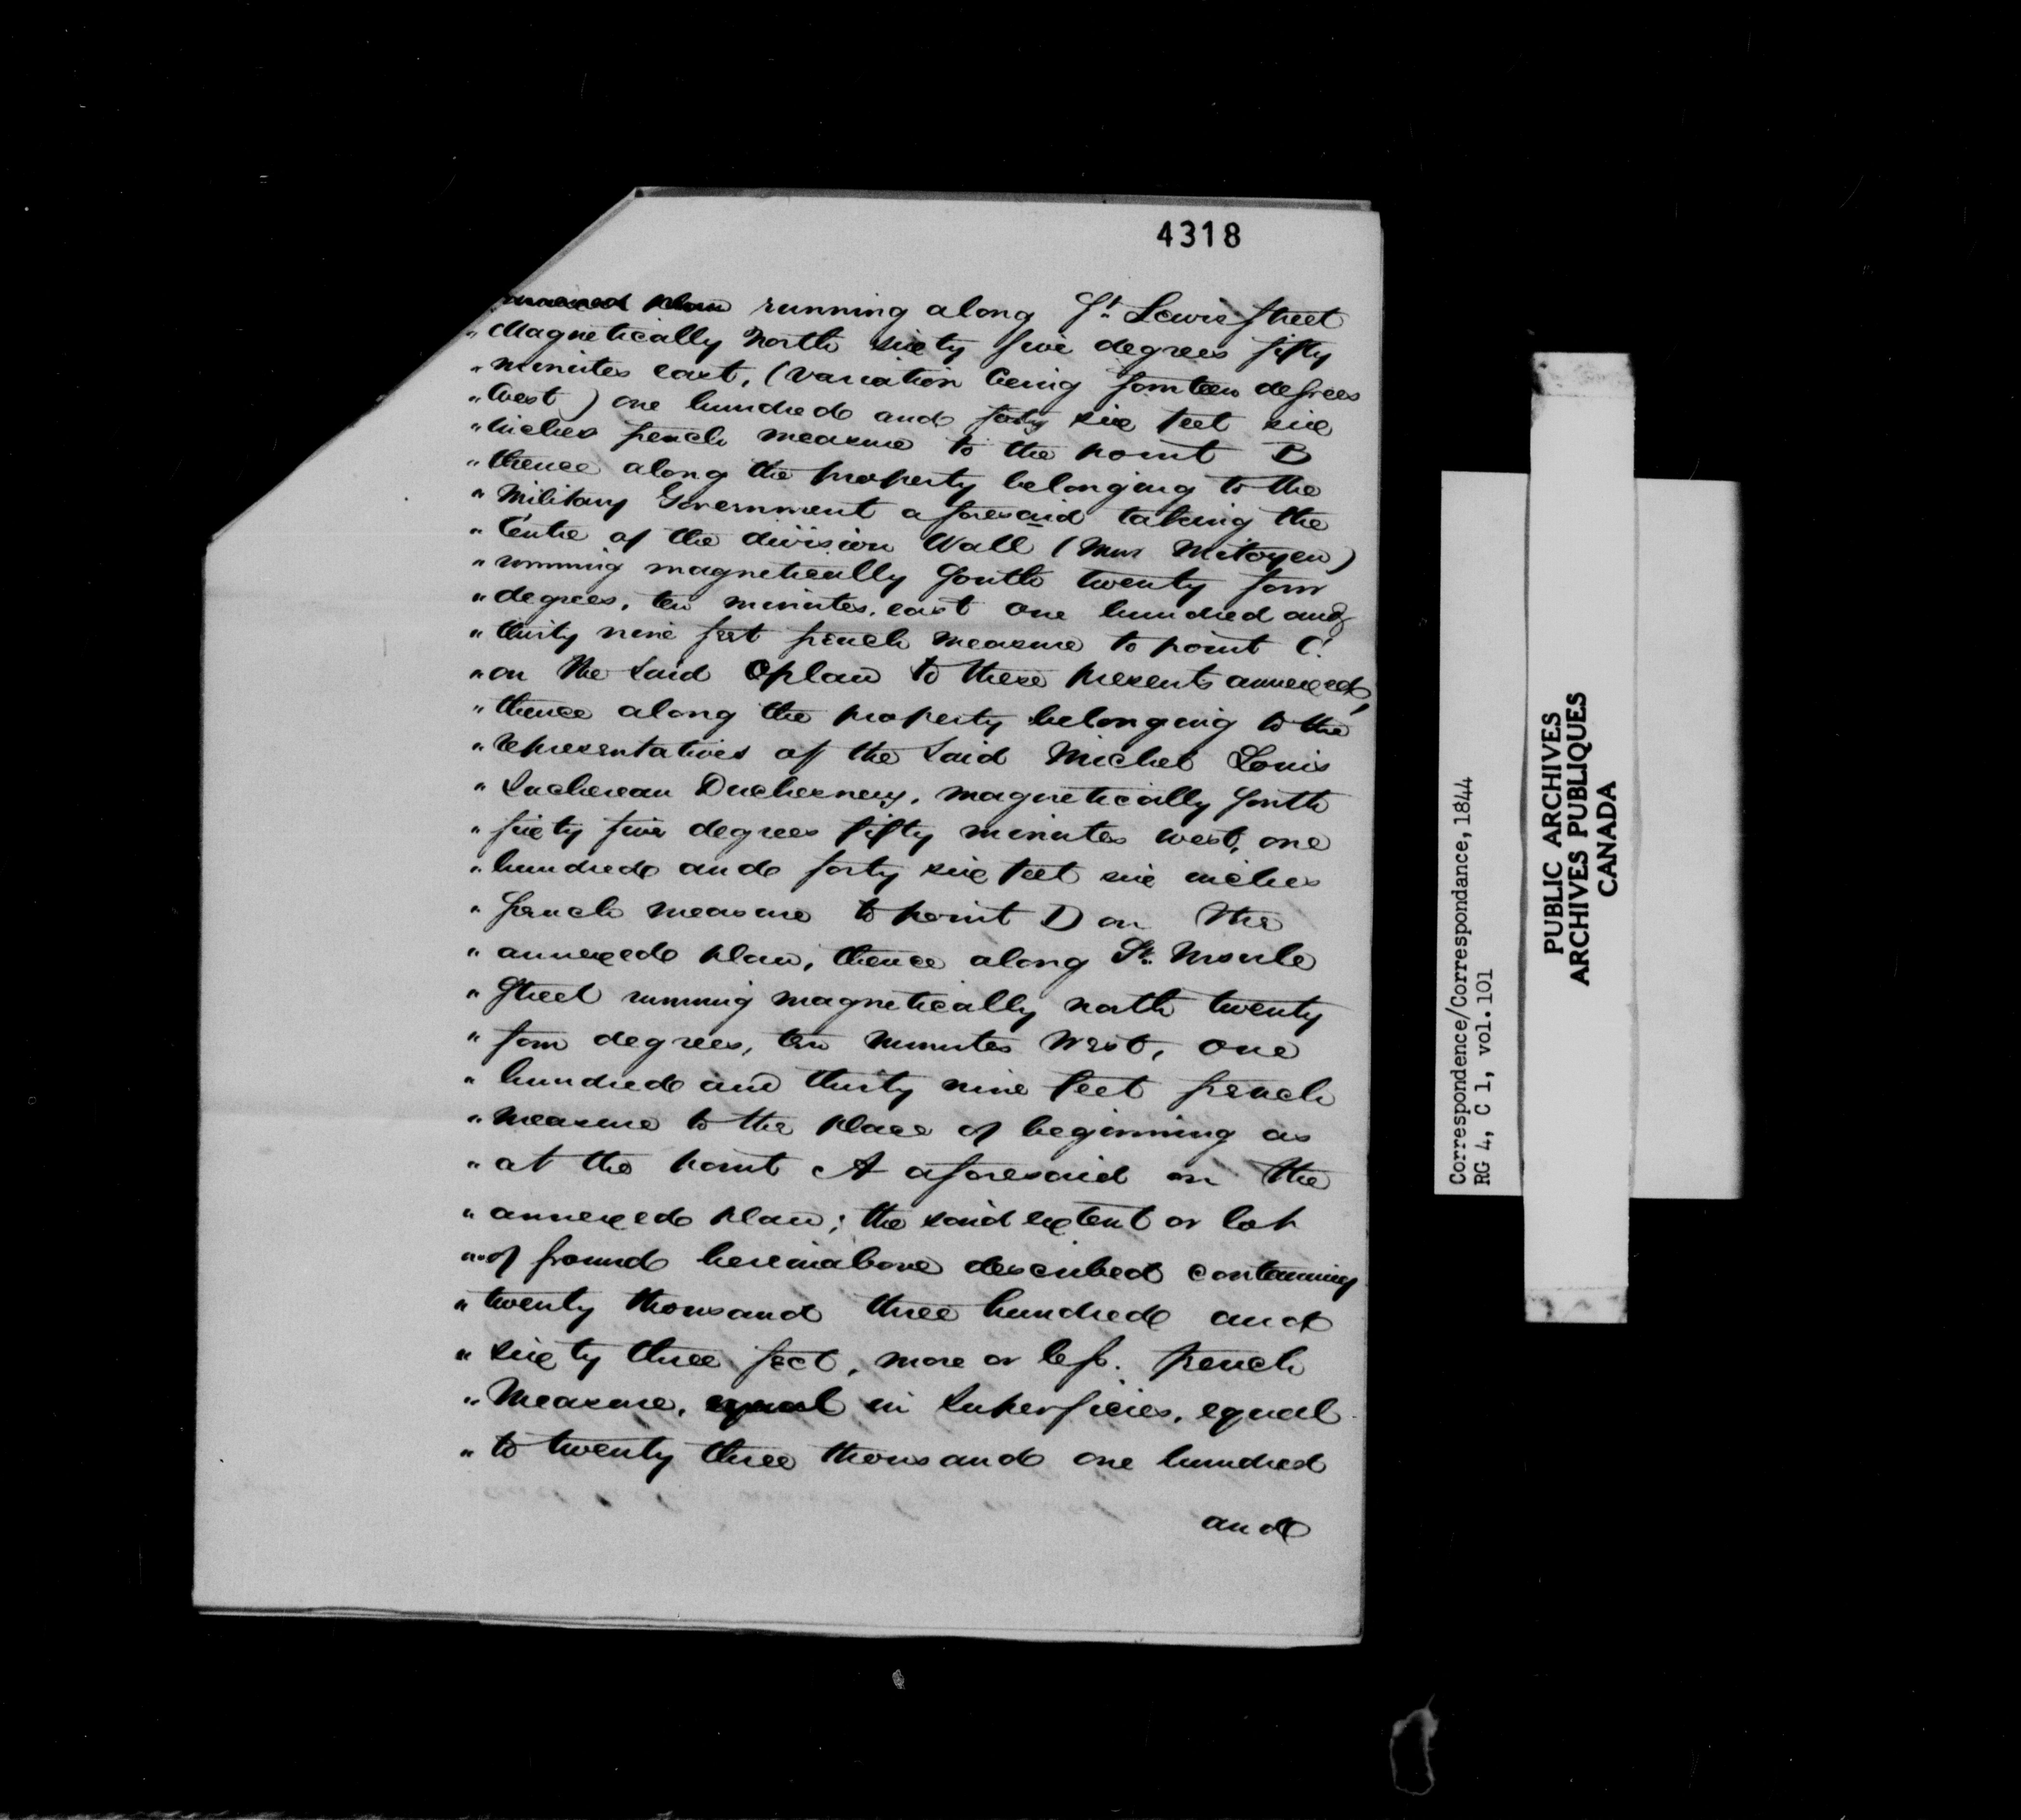 4318
annexed plan running along St. Lewis Street
" Magnetically North sixty five degrees fifty
" minutes east, (variation being fourteen degrees
" West) one hundred and forty six feet six
" inches french measure to the point B
" thence along the property belonging to the
" Military Government aforesaid taking the
" Centre of the division Wall (Mur Mitoyen)
" running magnetically South twenty four
" degrees, ten minutes, east one hundred and
" thirty nine feet french measure to point C.
" on the said plan to these presents annexed,
" thence along the property belonging to the
" representatives of the said Michel Louis
" Juchereau Duchesnay, magnetically South
" sixty five degrees fifty minutes west, one
" hundred and forty six feet six inches
" french measure to point D on the
" annexed plan, thence along St. Ursule
" Street running magnetically north twenty
" four degrees, ten minutes West, one
" hundred and thirty nine feet french
" measure to the place of beginning as
" at the point A aforesaid on the
" annexed plan; the said extent or lot
" of ground hereinabove described containing
" twenty thousand three hundred and
" sixty three feet, more or less. french
" Measure, equal in Superficies, equal
" to twenty three thousand one hundred
and
Correspondence/Correspondance, 1844
RG 4, C 1, vol. 101
PUBLIC ARCHIVES
ARCHIVES PUBLIQUES
CANADA